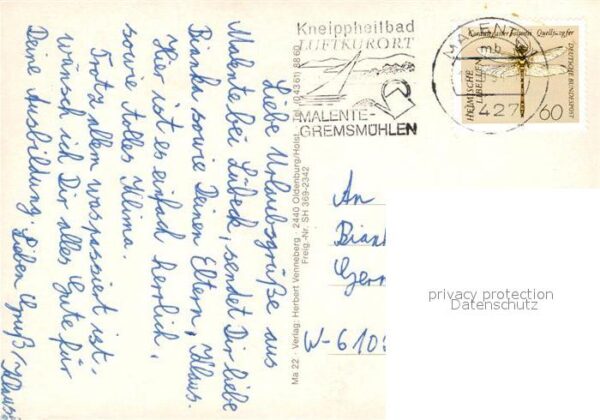 Liebe Urlaubsgrüße aus
Malente bei Lübeck, sendet Dir liebe
Bianka sowie Deinen Eltern, Klaus.
Hier ist es einfach herrlich,
sowie tolles Klima.
Trotz allem was passiert ist-
wünsch ich Dir alles Gute für
Deine Ausbildung. Lieben Gruß, Klaus
Ma 22 · Verlag: Herbert Venneberg · 2440 Oldenburg/Holst. (0 43 61) 88 60
Freig.-Nr. SH 369-2342
Kneippheilbad
LUFTKURORT
MALENTE-
GREMSMÜHLEN
MALENTE
mb
427
Quelljungfer
HEIMISCHE
LIBELLEN
DEUTSCHE BUNDESPOST
60
An
Bian
Ger
W-610
privacy protection
Datenschutz